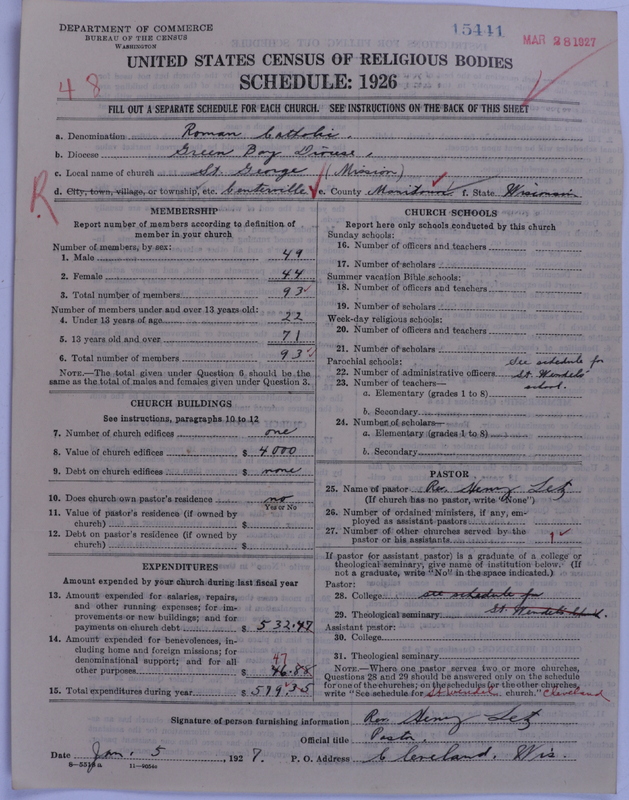 DEPARTMENT OF COMMERCE
BUREAU OF THE CENSUS
WASHINGTON
15441
MAR 28 1927
UNITED STATES CENSUS OF RELIGIOUS BODIES
SCHEDULE: 1926
48
FILL OUT A SEPARATE SCHEDULE FOR EACH CHURCH. SEE INSTRUCTIONS ON THE BACK OF THIS SHEET
a. Denomination Roman Catholic.
b. Diocese Green Bay Diocese,
c. Local name of church St. George (Mission)
d. City, town, village, or township, etc. Centerville e. County Manitowoc f. State Wisconsin
R
MEMBERSHIP
Report number of members according to definition of
member in your church
Number of members, by sex:
1. Male 49
2. Female 44
3. Total number of members 93
Number of members under and over 13 years old:
4. Under 13 years of age 22
5. 13 years old and over 71
6. Total number of members 93
NOTE.—The total given under Question 6 should be the
same as the total of males and females given under Question 3.
CHURCH BUILDINGS
See instructions, paragraphs 10 to 12
7. Number of church edifices one
8. Value of church edifices $ 4000
9. Debt on church edifices $ none
10. Does church own pastor's residence no
Yes or No
11. Value of pastor's residence (if owned by
church) $
12. Debt on pastor's residence (if owned by
church) $
EXPENDITURES
Amount expended by your church during last fiscal year
13. Amount expended for salaries, repairs,
and other running expenses; for im-
provements or new buildings; and for
payments on church debt $ 532.47
14. Amount expended for benevolences, in-
cluding home and foreign missions; for
denominational support; and for all
other purposes $ 46.88
47
15. Total expenditures during year $ 579.35
CHURCH SCHOOLS
Report here only schools conducted by this church
Sunday schools:
16. Number of officers and teachers
17. Number of scholars
Summer vacation Bible schools:
18. Number of officers and teachers
19. Number of scholars
Week-day religious schools:
20. Number of officers and teachers
21. Number of scholars
Parochial schools: See schedule for
22. Number of administrative officers St. Wendels
23. Number of teachers— school.
a. Elementary (grades 1 to 8)
b. Secondary
24. Number of scholars—
a. Elementary (grades 1 to 8)
b. Secondary
PASTOR
25. Name of pastor Rev. Henry Letz
(If church has no pastor, write "None")
26. Number of ordained ministers, if any, em-
ployed as assistant pastors
27. Number of other churches served by the
pastor or his assistants 1
If pastor (or assistant pastor) is a graduate of a college or
theological seminary, give name of institution below. (If
not a graduate, write "No" in the space indicated.)
Pastor:
28. College see schedule for
29. Theological seminary St. Wendels
Assistant pastor:
30. College
31. Theological seminary
NOTE.—Where one pastor serves two or more churches,
Questions 28 and 29 should be answered only on the schedule
for one of the churches; on the schedules for the other churches,
write "See schedule for St. Wendel church." Cleveland
Signature of person furnishing information Rev. Henry Letz
Official title Pastor.
Date Jan. 5, 1927. P. O. Address Cleveland, Wis.